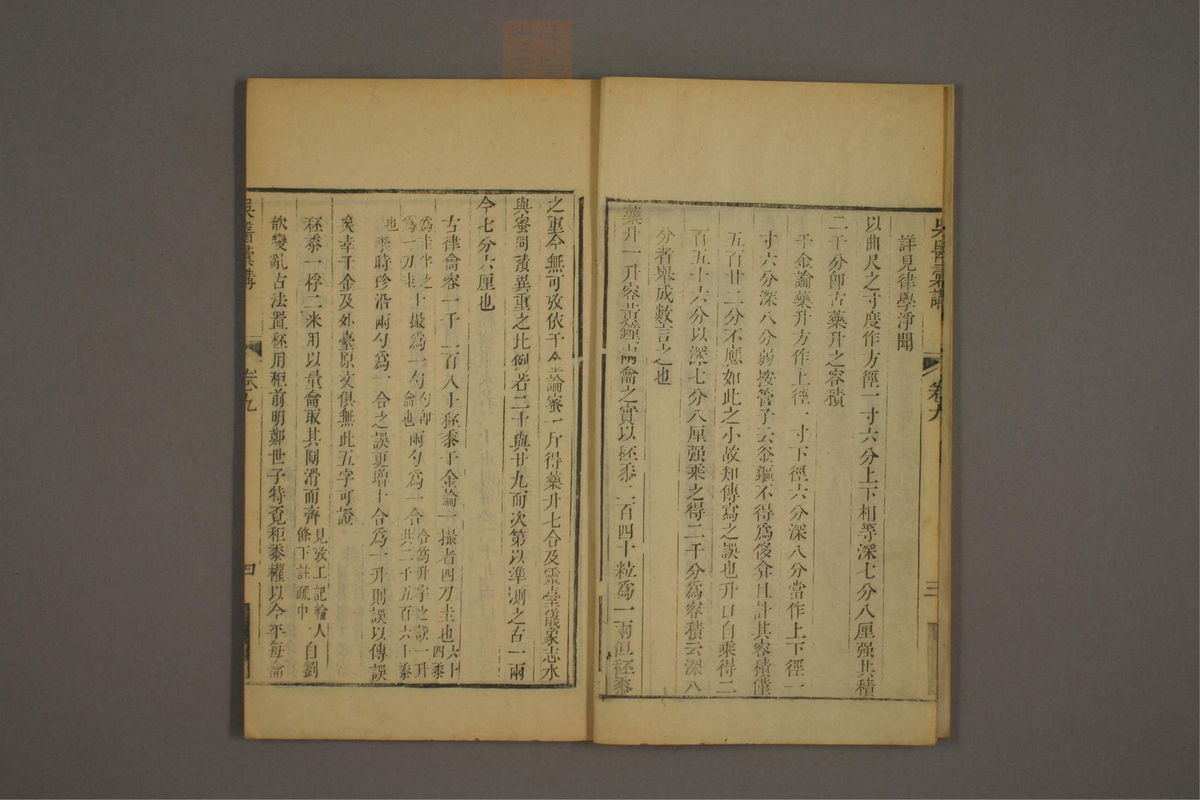 吳醫彙講
卷九
三
詳見律學淨聞
以曲尺之寸度作方徑一寸六分上下相等深七分八厘强共積
二千分卽古藥升之容積
千金論藥升方作上徑一寸下徑六分深八分當作上下徑一
寸六分深八分弱按管子云釜鏂不得爲侈弇且計其容積僅
五百廿二分不應如此之小故知傳寫之誤也升口自乘得二
百五十六分以深七分八厘强乘之得二千分爲容積云深八
分者舉成數言之也
藥升一升容黃鐘兩龠之實以秬黍二百四十粒爲一兩但秬黍
之重今無可攷依千金論蜜一斤得藥升七合及靈臺儀象志水
與蜜同積異重之比例若二十與廿九而次第以準測之古一兩
今七分六厘也
古律龠容一千二百八十秬黍千金論一撮者四刀圭也六十四黍
爲圭十之十撮爲一勺勺卽龠也兩勺爲一合合爲升字之誤一升共二千五百六十黍
爲一刀圭
也李時珍沿兩勺爲一合之誤更增十合爲一升則誤以傳誤
矣幸千金及外臺原文俱無此五字可證
秬黍一稃二米用以量龠取其圓滑而齊見攷工記輪人條下註疏中自劉
歆變亂古法置秬用秠前明鄭世子特覓秬黍權以今平每龠
吳醫彙講
卷九
四